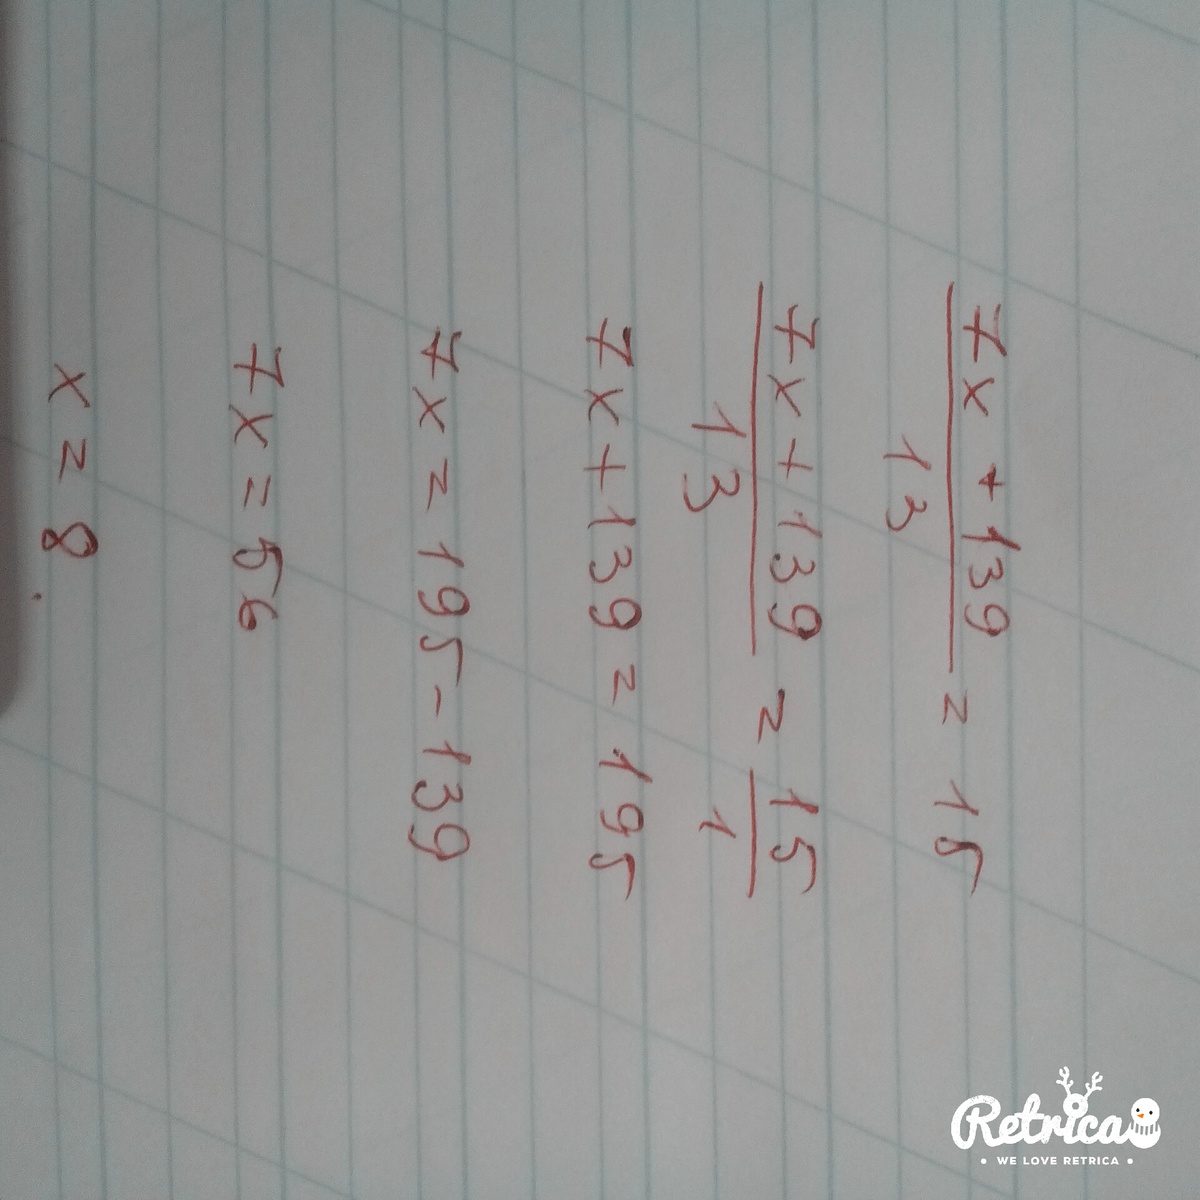 7x + 139 / 13 = 15
7x + 139 / 13 = 15 / 1
7x + 139 = 195
7x = 195 - 139
7x = 56
x = 8.
Retrica
• WE LOVE RETRICA •